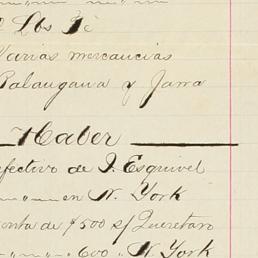 2 Lbs Té
Varias mercancias
Palangana y Jarra
Haber
efectivo de J. Esquivel
" " en N. York
onta de $500 s/ Queretaro
" " " 600 " N. York